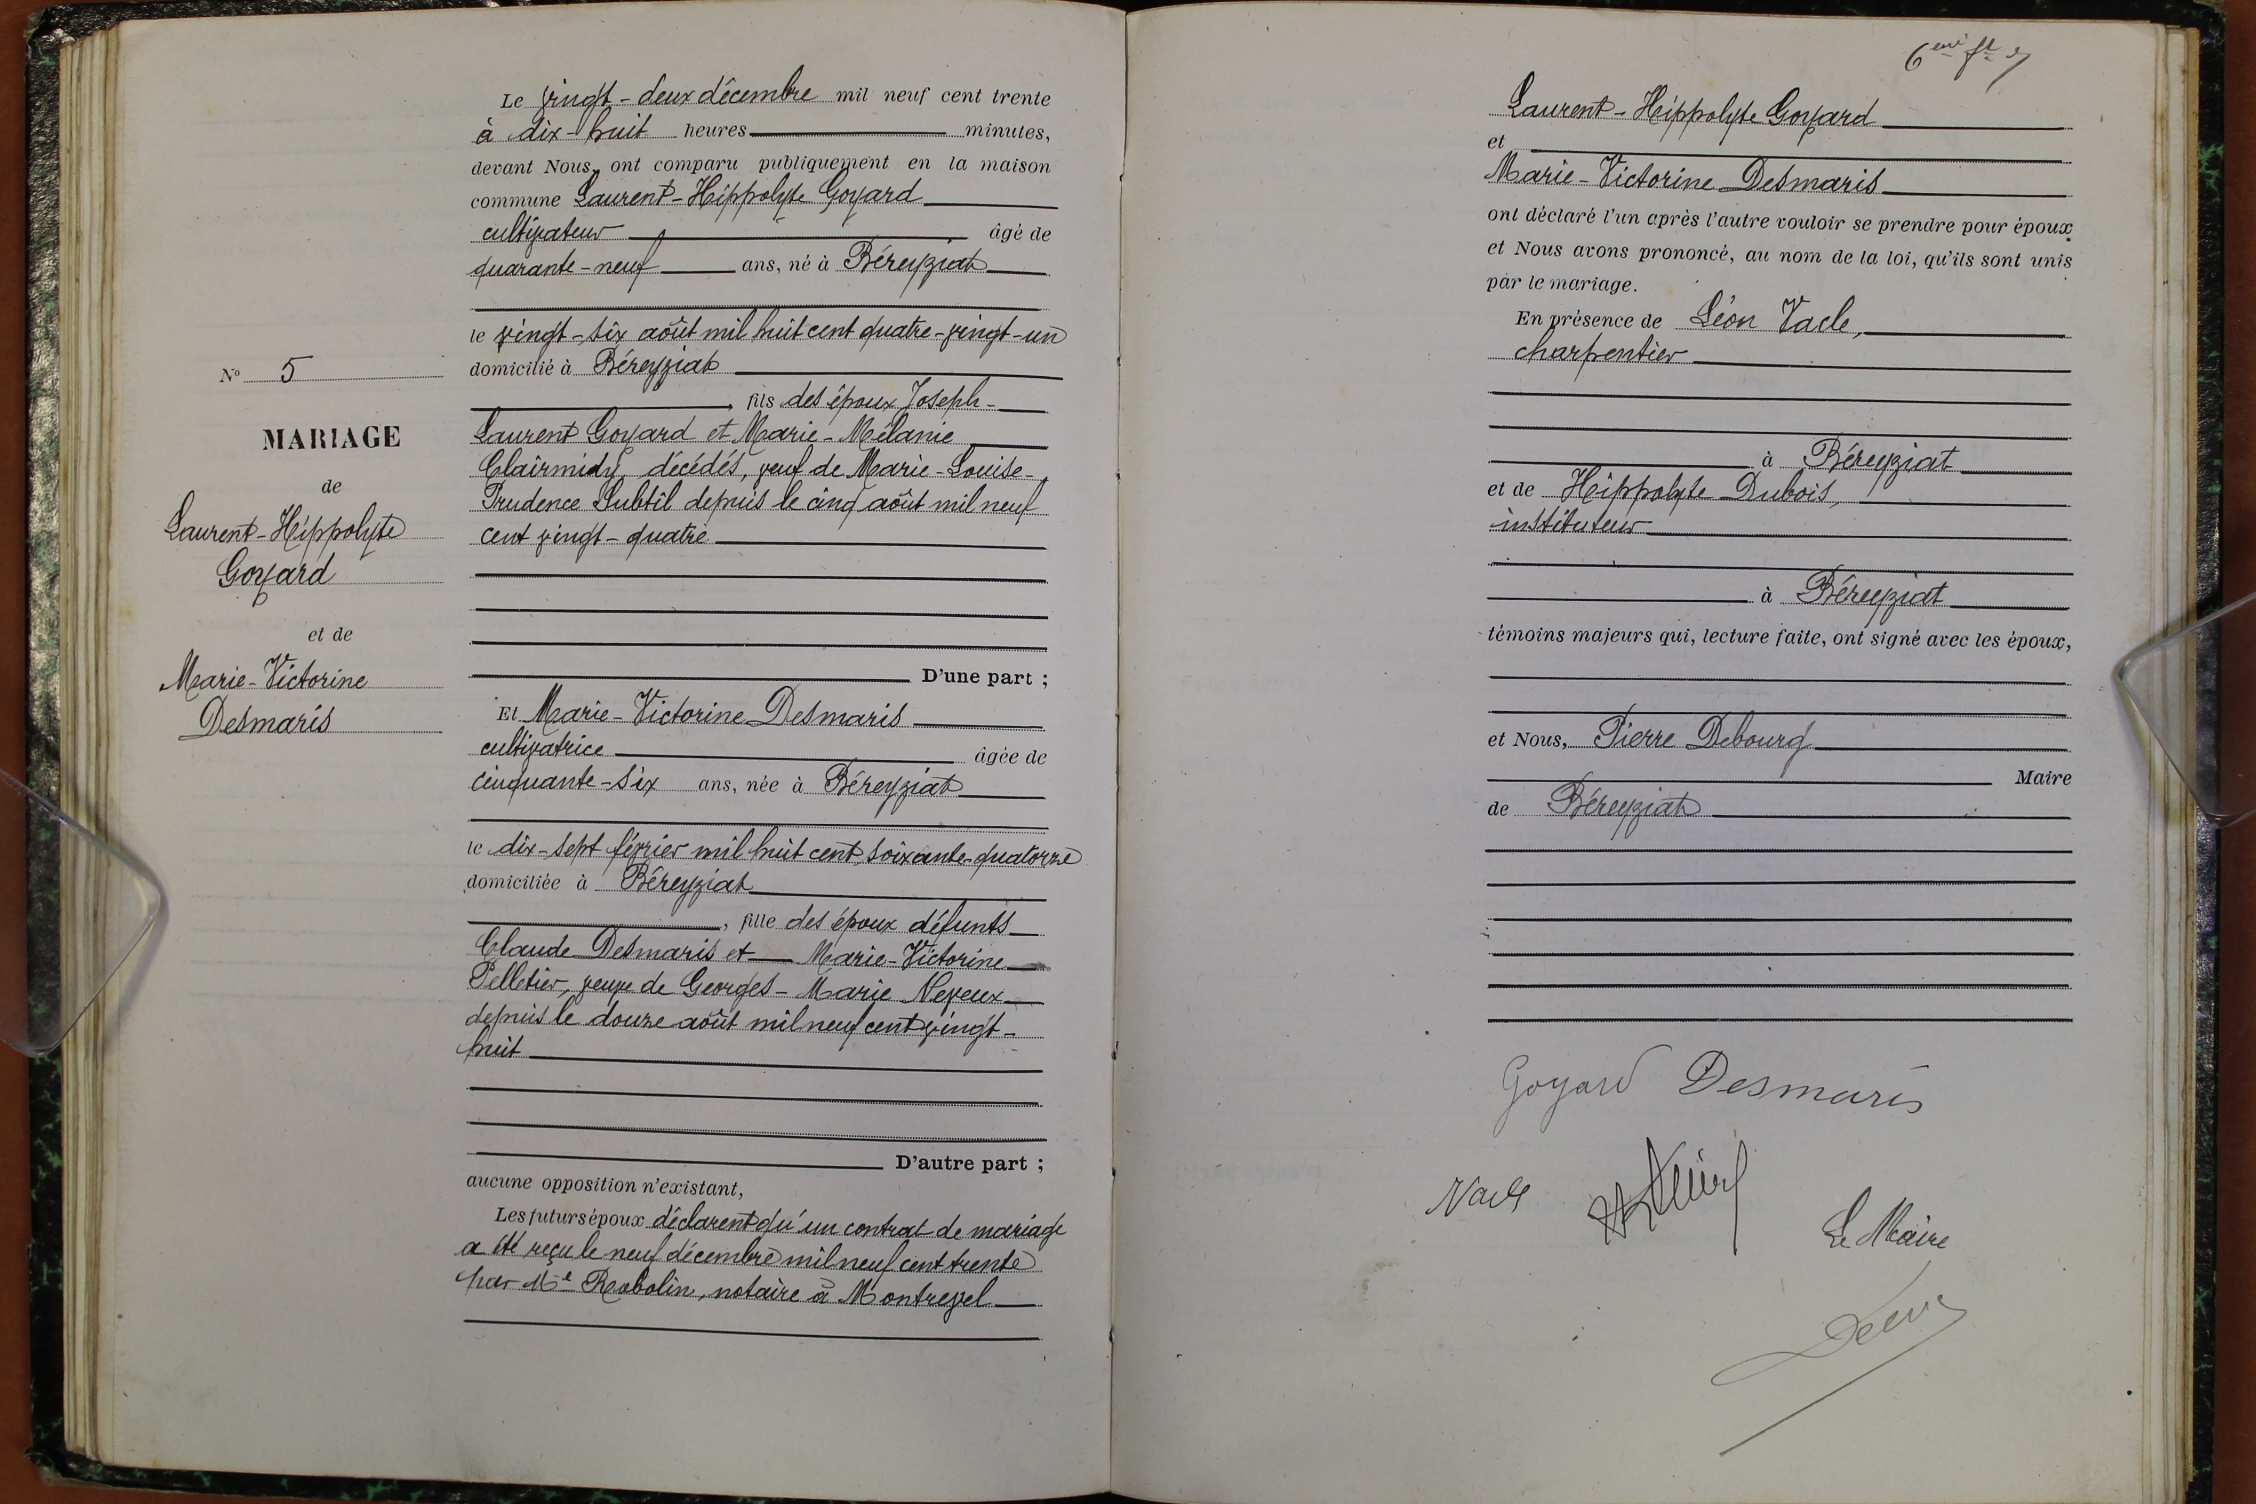 Le vingt-deux décembre mil neuf cent trente
à dix-huit heures minutes,
devant Nous, ont comparu publiquement en la maison
commune Laurent-Hippolyte Goyard
cultivateur âgé de
quarante-neuf ans, né à Béreyziat
le vingt-six août mil huit cent quatre-vingt-un
domicilié à Béreyziat
, fils des époux Joseph-
Laurent Goyard et Marie-Mélanie
Clairmidy, décédés, veuf de Marie-Louise-
Prudence Subtil depuis le cinq août mil neuf
cent vingt-quatre
D'une part ;
Et Marie-Victorine Desmaris
cultivatrice âgée de
cinquante-six ans, née à Béreyziat
le dix-sept février mil huit cent soixante-quatorze
domiciliée à Béreyziat
, fille des époux défunts
Claude Desmaris et Marie-Victorine
Pelletier, veuve de Georges-Marie Neveux
depuis le douze août mil neuf cent vingt-
huit
D'autre part ;
aucune opposition n'existant,
Les futurs époux déclarent qu'un contrat de mariage
a été reçu le neuf décembre mil neuf cent trente
par Me Robolin, notaire à Montrevel
N° 5
MARIAGE
de
Laurent-Hippolyte
Goyard
et de
Marie-Victorine
Desmaris
6eme
Laurent-Hippolyte Goyard
et
Marie-Victorine Desmaris
ont déclaré l'un après l'autre vouloir se prendre pour époux
et Nous avons prononcé, au nom de la loi, qu'ils sont unis
par le mariage.
En présence de Léon Vacle,
charpentier
à Béreyziat
et de Hippolyte Dubois,
instituteur
à Béreyziat
témoins majeurs qui, lecture faite, ont signé avec les époux,
et Nous, Pierre Debourg
Maire
de Béreyziat
Goyard Desmaris
Vacle
Le Maire